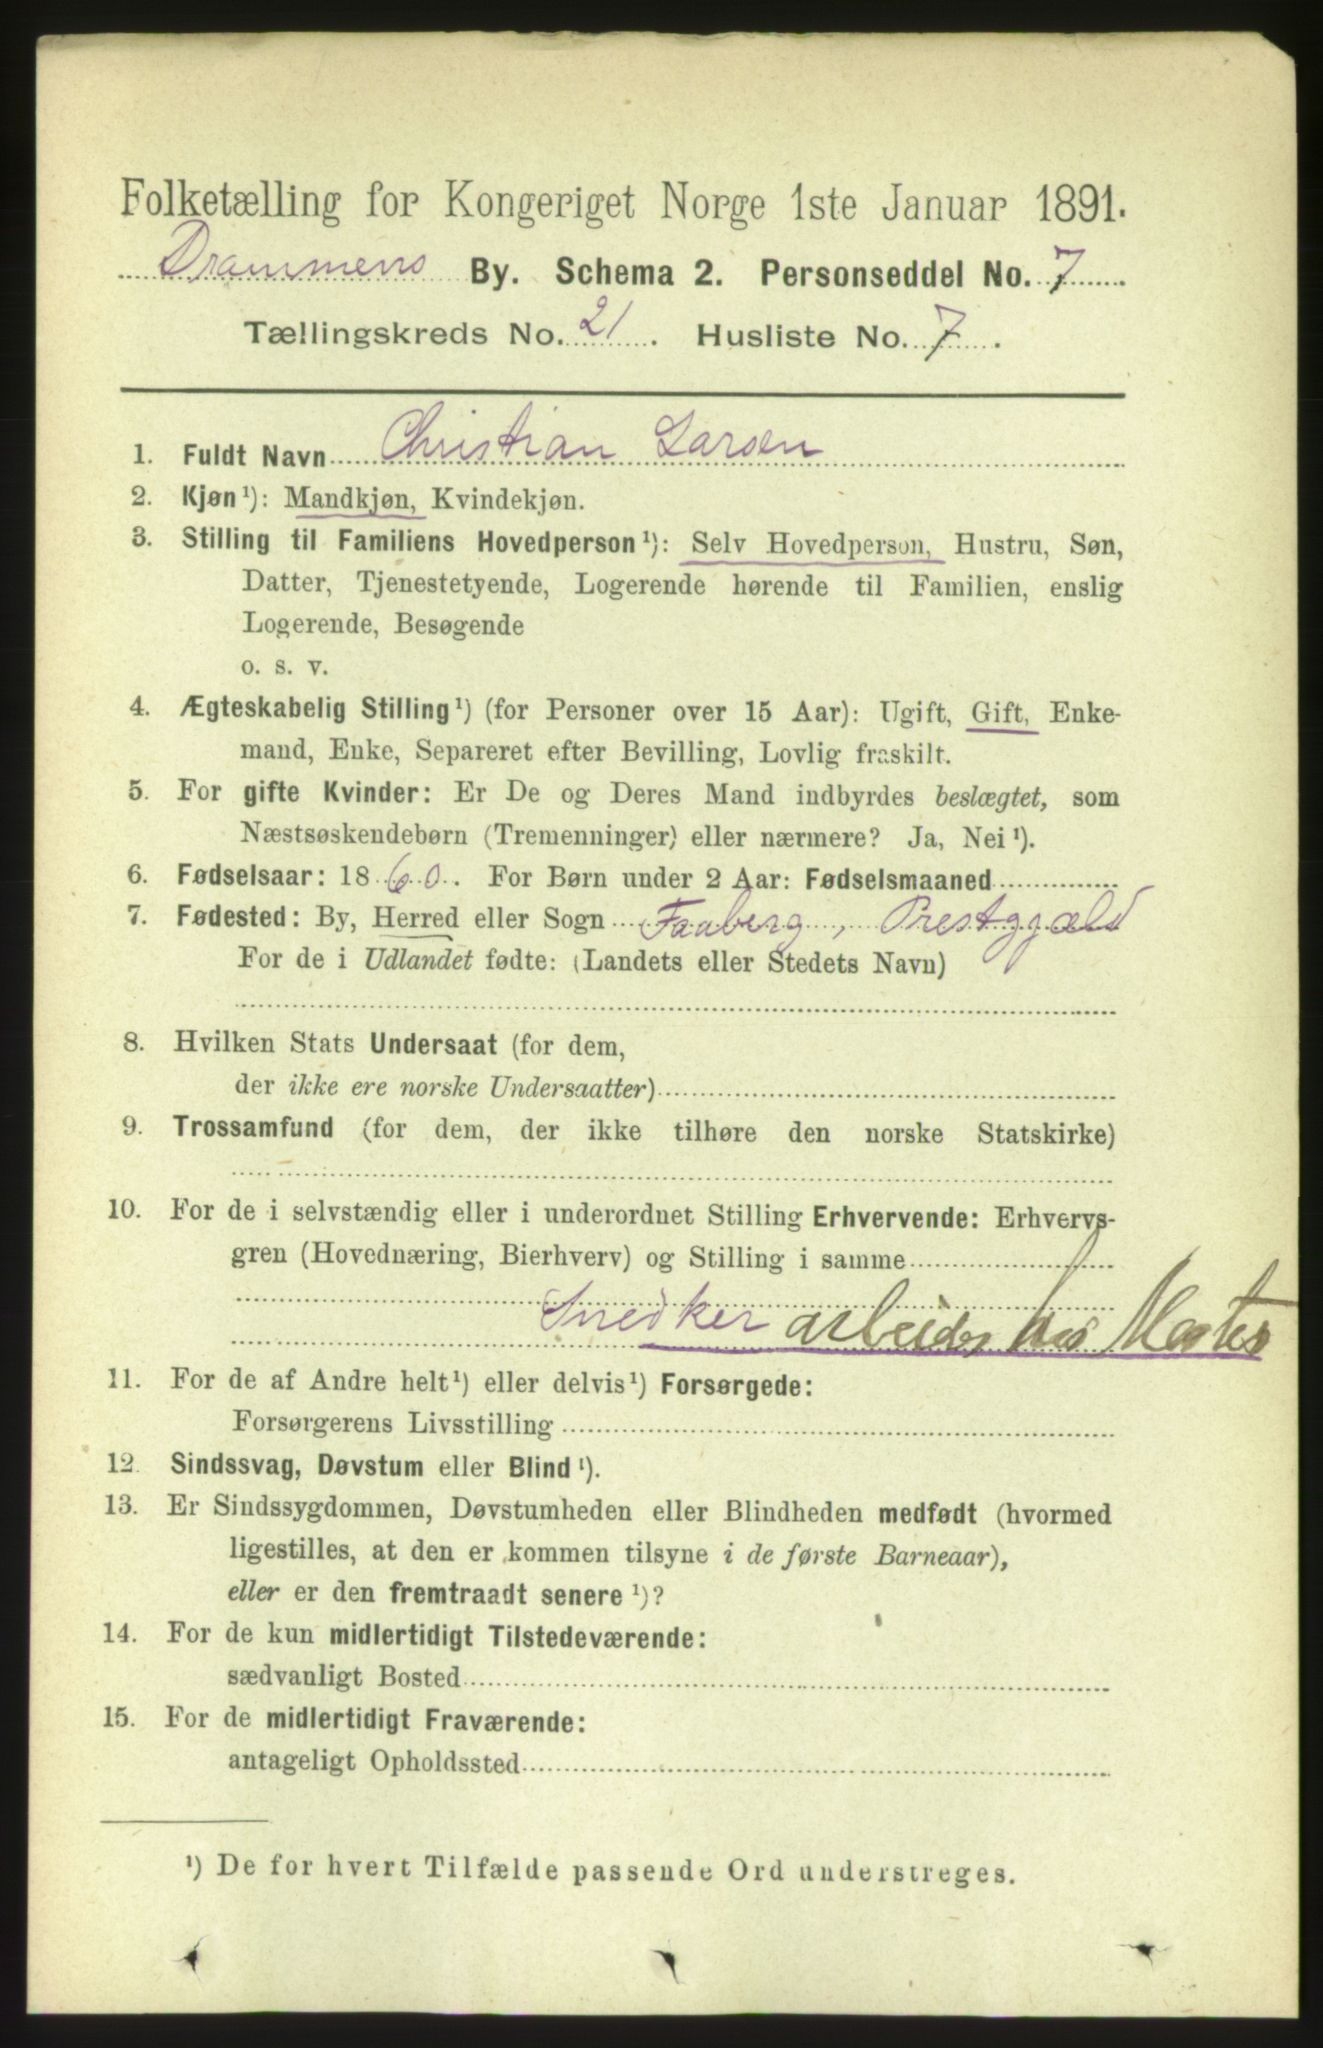 Folketælling for Kongeriget Norge 1ste Januar 1891.
Drammens By. Schema 2. Personseddel No. 7
Tællingskreds No. 21. Husliste No. 7.
1. Fuldt Navn Christian Larsen
2. Kjøn¹): Mandkjøn, Kvindekjøn.
3. Stilling til Familiens Hovedperson¹): Selv Hovedperson, Hustru, Søn,
Datter, Tjenestetyende, Logerende hørende til Familien, enslig
Logerende, Besøgende
o. s. v.
4. Ægteskabelig Stilling¹) (for Personer over 15 Aar): Ugift, Gift, Enke-
mand, Enke, Separeret efter Bevilling, Lovlig fraskilt.
5. For gifte Kvinder: Er De og Deres Mand indbyrdes beslægtet, som
Næstsøskendebørn (Tremenninger) eller nærmere? Ja, Nei¹).
6. Fødselsaar: 1860. For Børn under 2 Aar: Fødselsmaaned
7. Fødested: By, Herred eller Sogn Faaberg, Prestggjæld
For de i Udlandet fødte: (Landets eller Stedets Navn)
8. Hvilken Stats Undersaat (for dem,
der ikke ere norske Undersaatter)
9. Trossamfund (for dem, der ikke tilhøre den norske Statskirke)
10. For de i selvstændig eller i underordnet Stilling Erhvervende: Erhvervs-
gren (Hovednæring, Bierhverv) og Stilling i samme
Snedker arbeider hos Mester
11. For de af Andre helt¹) eller delvis¹) Forsørgede:
Forsørgerens Livsstilling
12. Sindssvag, Døvstum eller Blind¹).
13. Er Sindssygdommen, Døvstumheden eller Blindheden medfødt (hvormed
ligestilles, at den er kommen tilsyne i de første Barneaar),
eller er den fremtraadt senere¹)?
14. For de kun midlertidigt Tilstedeværende:
sædvanligt Bosted
15. For de midlertidigt Fraværende:
antageligt Opholdssted
¹) De for hvert Tilfælde passende Ord understreges.